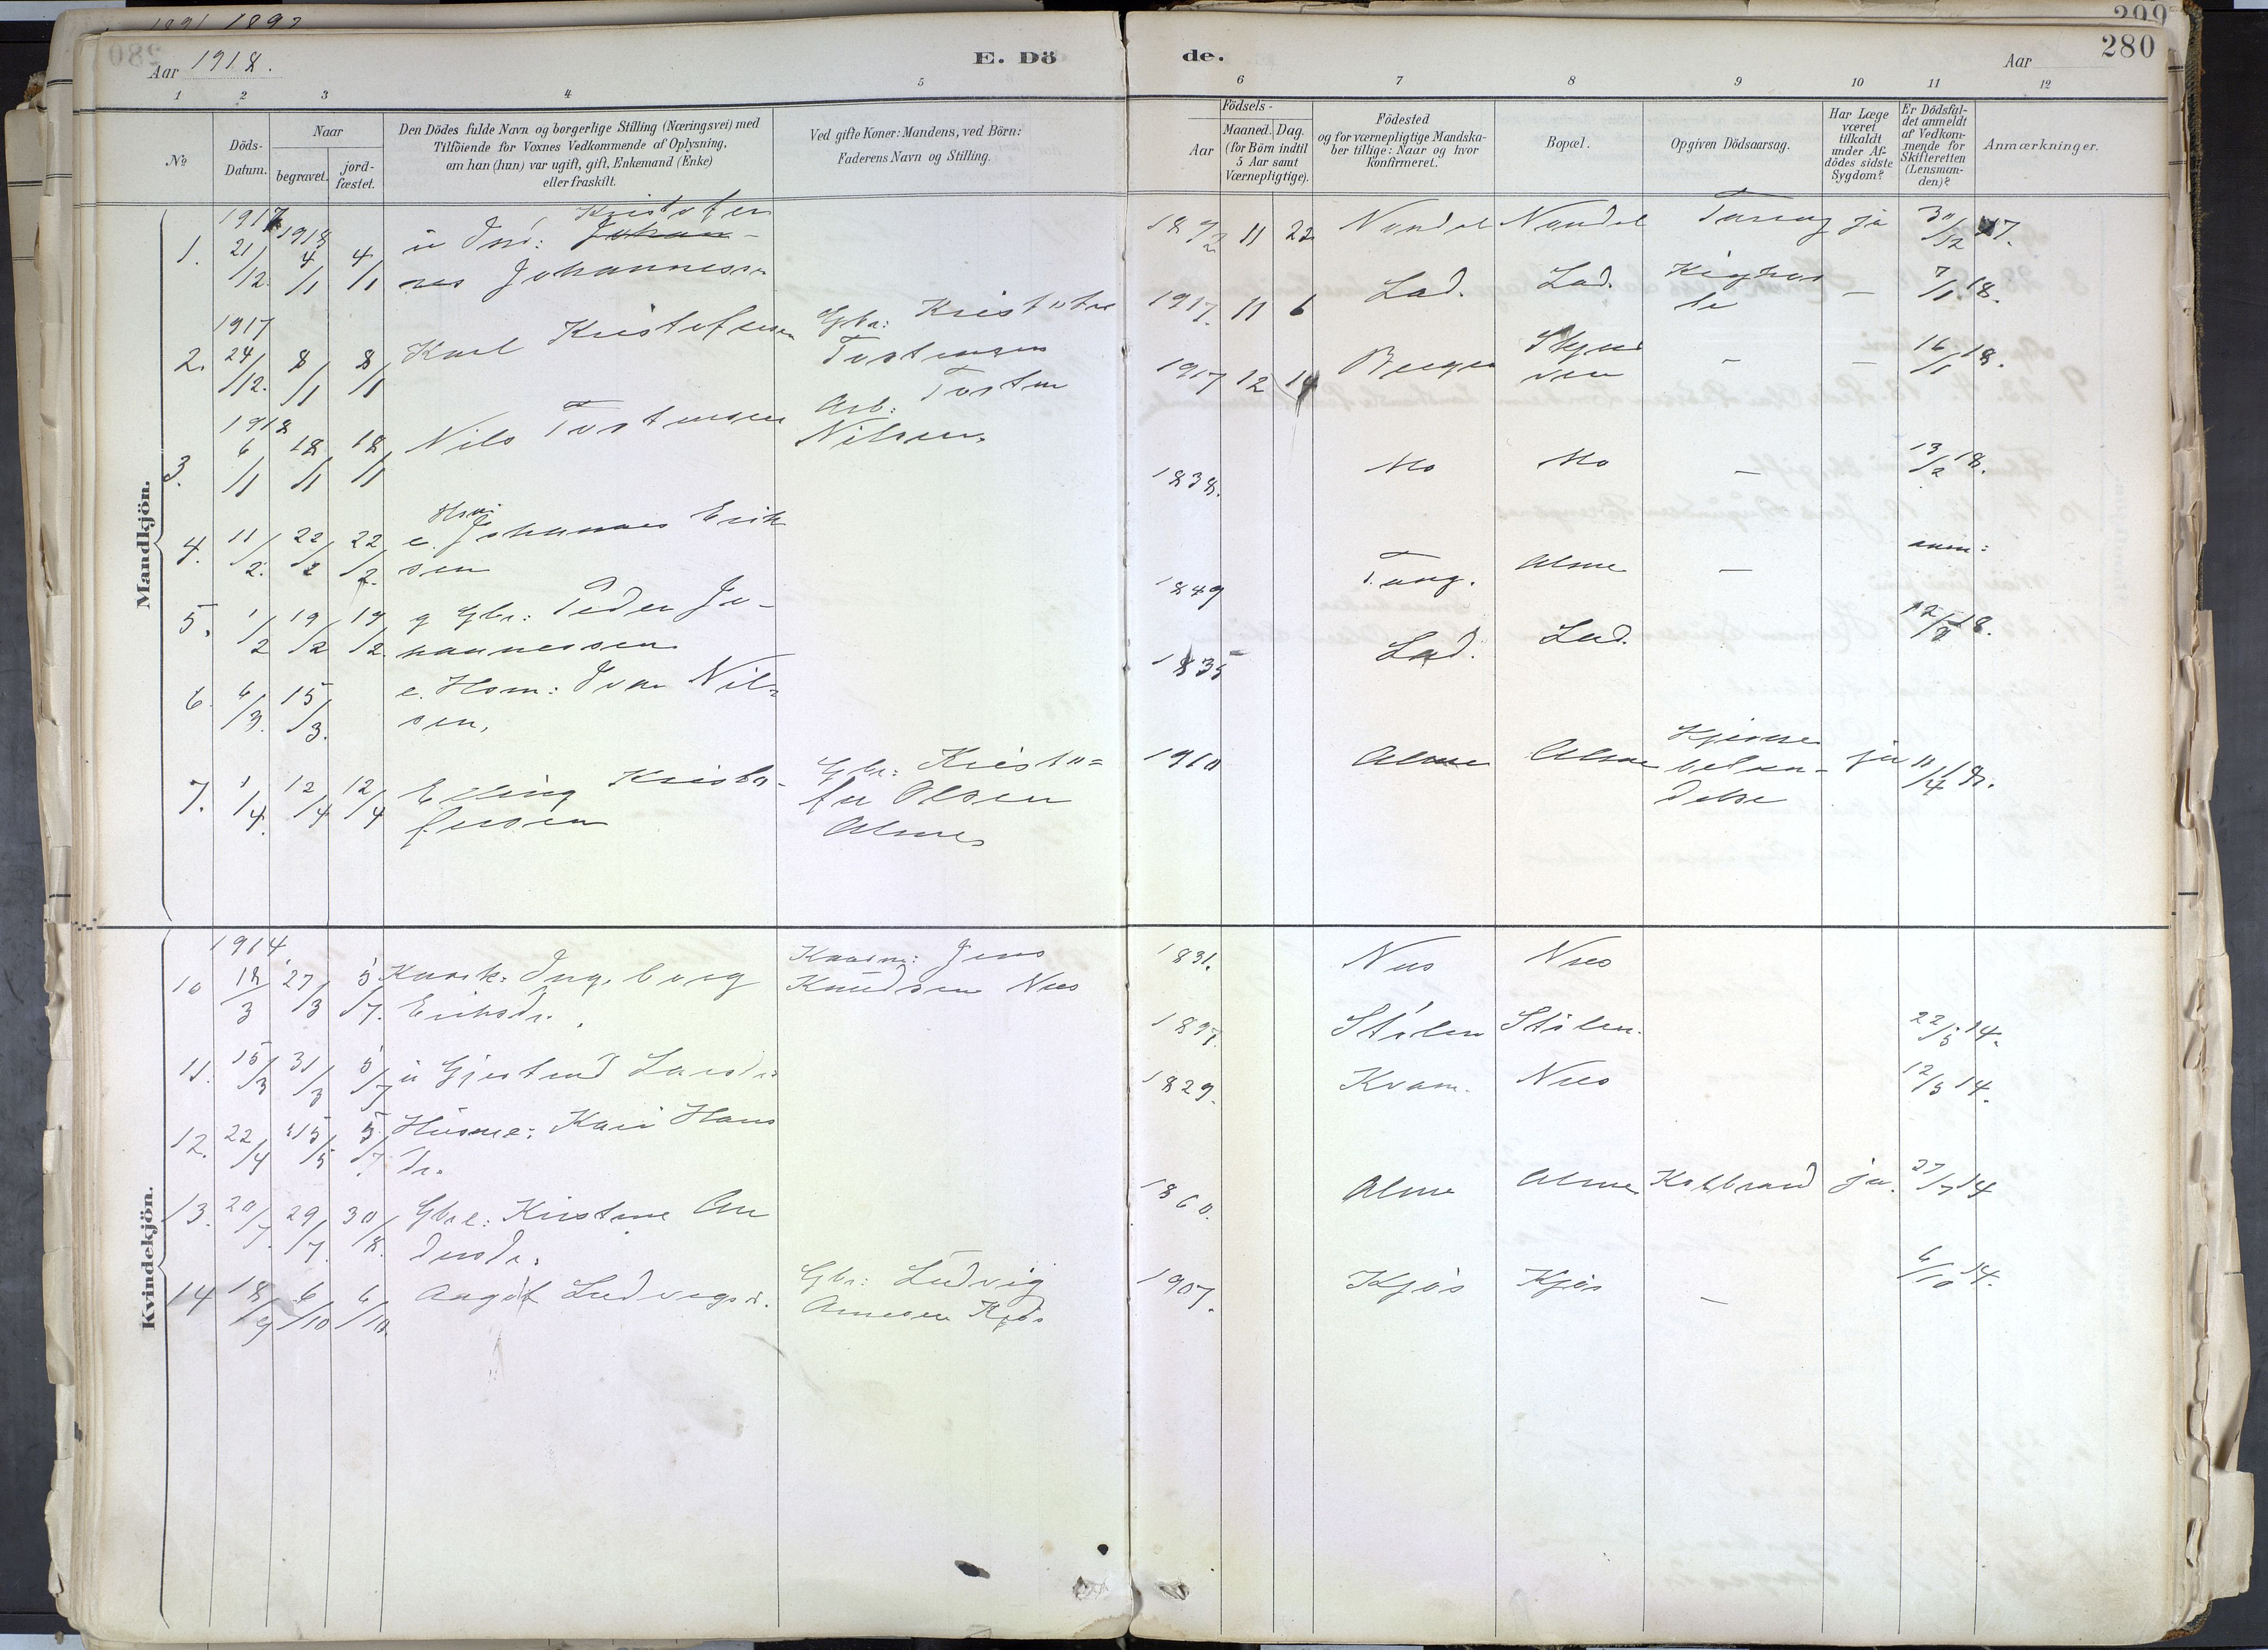 1891 1892
299
280
Aar 1918.
E. Döde.
Aar
1 2 3 4 5 6 7 8 9 10 11 12
No
Döds-
Datum.
Naar
begravet.
jord-
fæstet.
Den Dödes fulde Navn og borgerlige Stilling (Næringsvei) med
Tilföiende for Voxnes Vedkommende af Oplysning,
om han (hun) var ugift, gift, Enkemand (Enke)
eller fraskilt.
Ved gifte Koner: Mandens, ved Börn:
Faderens Navn og Stilling.
Födsels-
Aar
Maaned. Dag.
(for Börn indtil
5 Aar samt
Værnepligtige).
Födested
og for værnepligtige Mandska-
ber tillige: Naar og hvor
konfirmeret.
Bopæl.
Opgiven Dödsaarsag.
Har Læge
været
tilkaldt
under Af-
dödes sidste
Sygdom?
Er Dödsfal-
det anmeldt
af Vedkom-
mende for
Skifteretten
(Lensman-
den)?
Anmærkninger.
Mandkjön.
1917 1918 Kristofer
1. 21/12 4/1 4/1 u Johan-
nes Johannessen
11 22 Nundal Nundal Tæring ja 30/12 17.
1917
2. 24/12. 8/1 8/1 Karl Kristofersen Gbr: Kristofer
Tostensen
1917. 11 6 Lad. Lad. Kighos
te – 7/1 18.
1918
3. 6/1 18/1 18/1 Nils Tostensen Arb: Tosten
Nilsen.
1917 12 14 Bergen – – 16/1 18.
4. 11/2. 22/2 22/2. e. Hsm: Johannes Erik
sen
1838. Mo Mo – 13/2 18.
5. 1/2 19/2 19/2. g Gbr: Peder Jo-
hannessen
1849 Tang. Alme – anm:
6. 6/3. 15/3. e. Hsm: Ivar Nil-
sen.
1835 Lad. Lad. 18.
7. 1/4. 12/4 12/4 Elling Kristo-
fersen
Gbr: Kristo=
fer Olsen
Alme
1910 Alme Alme Hjerne
betæn-
delse ja 11/4 18.
Kvindekjön.
1914
10 18/3 27/3 5/7. Kaark: Ingeborg
Eriksdr.
Kaarm: Jens
Knudsen Nes
1831. Nes Nes
11. 15/3 31/3 5/7 u Gjertrud Larsdr
1897. Stölen Stölen. 22/5 14.
12. 22/4 15/5 5/7. Husme: Kari Hans
dr.
1829. Kvam. Nes 12/5 14.
13. 20/7. 29/7. 30/8. Gbre: Kristine An
dersdr.
1860. Alme Alme Kolbrand ja. 27/7 14
14 18/9 6/10 6/10. Angot Ludvigsd. Gbr: Ludvig
Arnesen Kjös
1907. Kjös Kjös – 6/10 14.